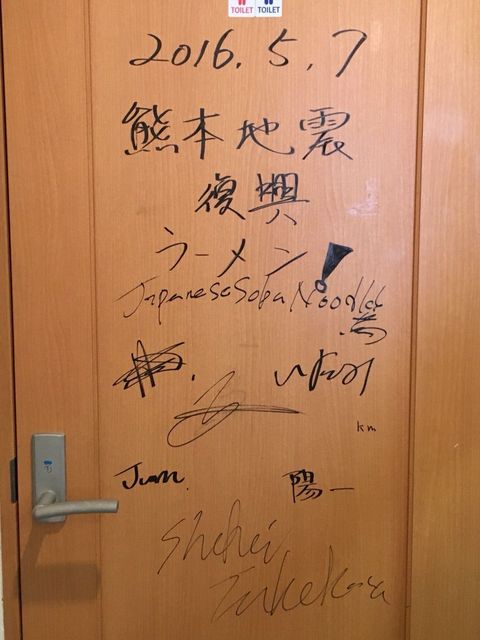 TOILET TOILET
2016.5.7
熊本地震
復興
ラーメン!
Japanese Soba Noodles
蔦
Jum
陽一
Shohei